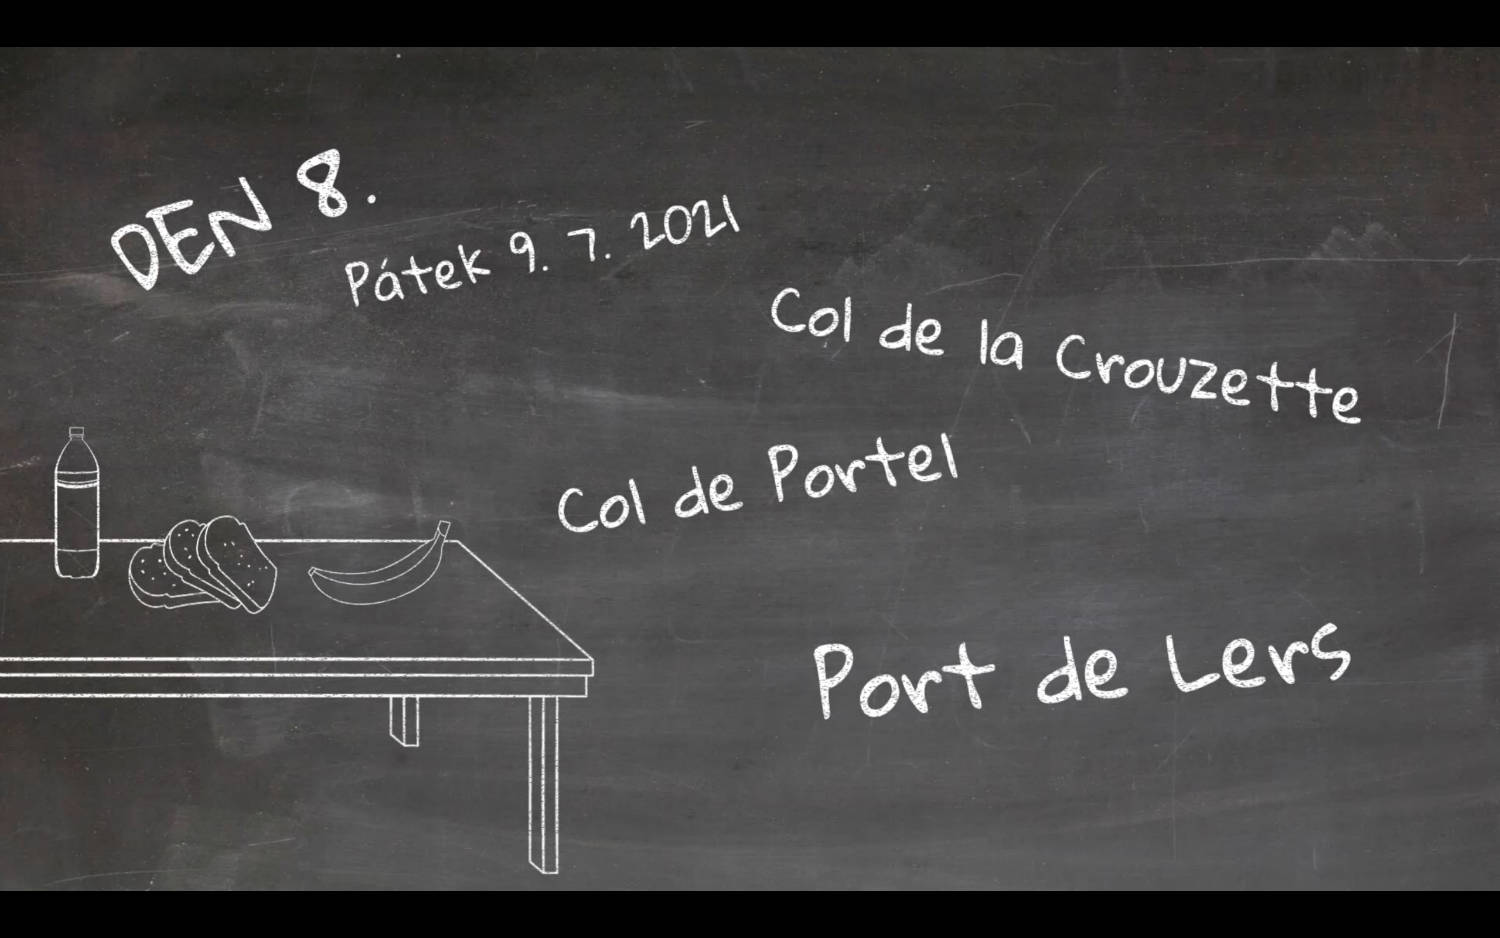 DEN 8.
Pátek 9. 7. 2021
Col de la Crouzette
Col de Portel
Port de Lers